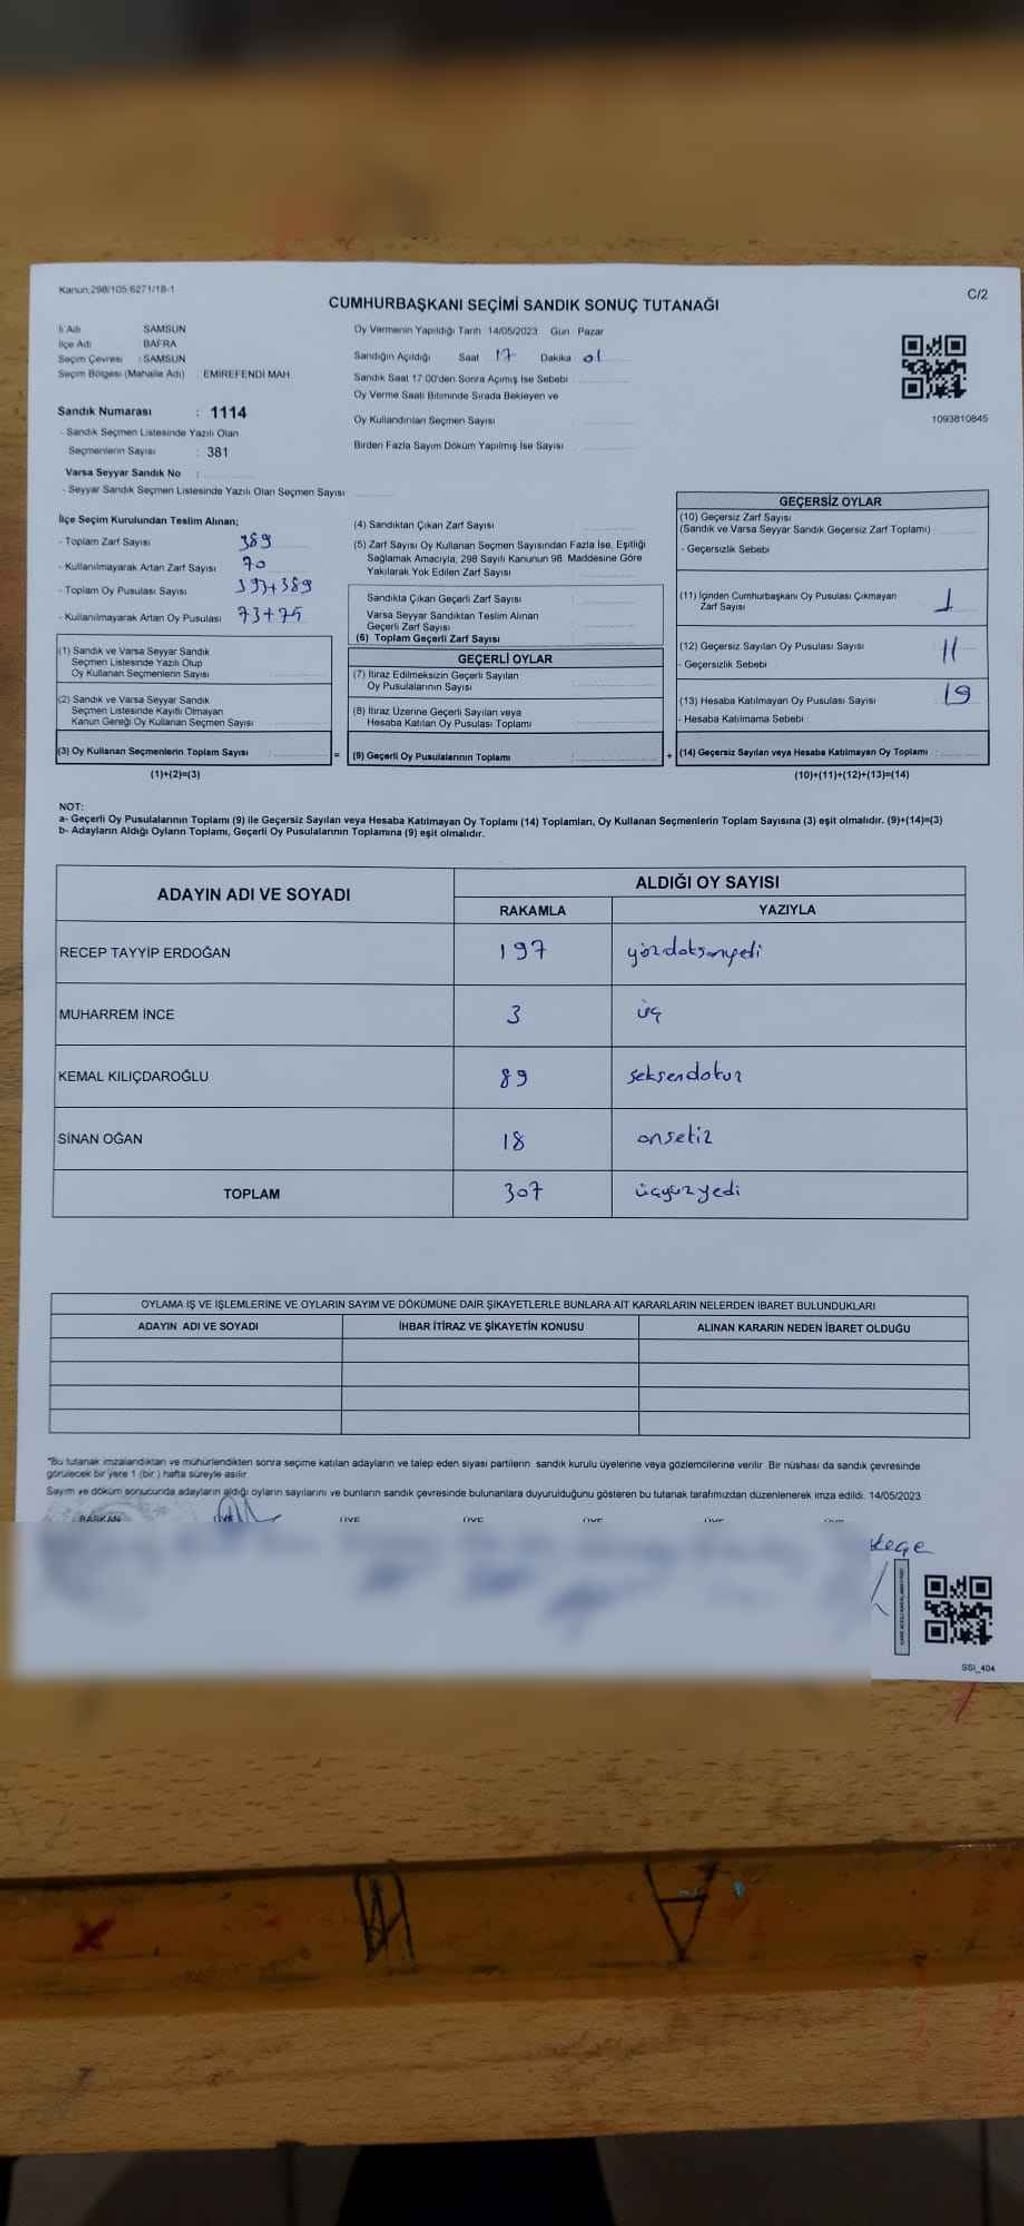 Kanun:298/105-6271/18-1
C/2
CUMHURBAŞKANI SEÇİMİ SANDIK SONUÇ TUTANAĞI
İl Adı SAMSUN
İlçe Adı BAFRA
Seçim Çevresi : SAMSUN
Seçim Bölgesi (Mahalle Adı) : EMİREFENDİ MAH.
Sandık Numarası : 1114
- Sandık Seçmen Listesinde Yazılı Olan
Seçmenlerin Sayısı : 381
Varsa Seyyar Sandık No :
- Seyyar Sandık Seçmen Listesinde Yazılı Olan Seçmen Sayısı
Oy Vermenin Yapıldığı Tarih 14/05/2023 Gün Pazar
Sandığın Açıldığı Saat 17 Dakika 01
Sandık Saat 17.00'den Sonra Açımış İse Sebebi
Oy Verme Saati Bitiminde Sırada Bekleyen ve
Oy Kullandırılan Seçmen Sayısı
Birden Fazla Sayım Döküm Yapılmış İse Sayısı
1093810845
İlçe Seçim Kurulundan Teslim Alınan;
- Toplam Zarf Sayısı 389
- Kullanılmayarak Artan Zarf Sayısı 70
- Toplam Oy Pusulası Sayısı +389
- Kullanılmayarak Artan Oy Pusulası 73+75
(1) Sandık ve Varsa Seyyar Sandık
Seçmen Listesinde Yazılı Olup
Oy Kullanan Seçmenlerin Sayısı
(2) Sandık ve Varsa Seyyar Sandık
Seçmen Listesinde Kayıtlı Olmayan
Kanun Gereği Oy Kullanan Seçmen Sayısı
(3) Oy Kullanan Seçmenlerin Toplam Sayısı
(1)+(2)=(3)
(4) Sandıktan Çıkan Zarf Sayısı
(5) Zarf Sayısı Oy Kullanan Seçmen Sayısından Fazla İse, Eşitliği
Sağlamak Amacıyla, 298 Sayılı Kanunun 98. Maddesine Göre
Yakılarak Yok Edilen Zarf Sayısı
Sandıkta Çıkan Geçerli Zarf Sayısı
Varsa Seyyar Sandıktan Teslim Alınan
Geçerli Zarf Sayısı
(6) Toplam Geçerli Zarf Sayısı
GEÇERLİ OYLAR
(7) İtiraz Edilmeksizin Geçerli Sayılan
Oy Pusulalarının Sayısı
(8) İtiraz Üzerine Geçerli Sayılan veya
Hesaba Katılan Oy Pusulası Toplamı
= (9) Geçerli Oy Pusulalarının Toplamı
GEÇERSİZ OYLAR
(10) Geçersiz Zarf Sayısı
(Sandık ve Varsa Seyyar Sandık Geçersiz Zarf Toplamı)
- Geçersizlik Sebebi
(11) İçinden Cumhurbaşkanı Oy Pusulası Çıkmayan
Zarf Sayısı 1
(12) Geçersiz Sayılan Oy Pusulası Sayısı 11
- Geçersizlik Sebebi
(13) Hesaba Katılmayan Oy Pusulası Sayısı 19
- Hesaba Katılmama Sebebi
+ (14) Geçersiz Sayılan veya Hesaba Katılmayan Oy Toplamı
(10)+(11)+(12)+(13)=(14)
NOT:
a- Geçerli Oy Pusulalarının Toplamı (9) ile Geçersiz Sayılan veya Hesaba Katılmayan Oy Toplamı (14) Toplamları, Oy Kullanan Seçmenlerin Toplam Sayısına (3) eşit olmalıdır. (9)+(14)=(3)
b- Adayların Aldığı Oyların Toplamı, Geçerli Oy Pusulalarının Toplamına (9) eşit olmalıdır.
ADAYIN ADI VE SOYADI ALDIĞI OY SAYISI
RAKAMLA YAZIYLA
RECEP TAYYİP ERDOĞAN 197 yüzdoksanyedi
MUHARREM İNCE 3 üç
KEMAL KILIÇDAROĞLU 89 seksendokuz
SİNAN OĞAN 18 onsekiz
TOPLAM 307 üçyüzyedi
OYLAMA İŞ VE İŞLEMLERİNE VE OYLARIN SAYIM VE DÖKÜMÜNE DAİR ŞİKAYETLERLE BUNLARA AİT KARARLARIN NELERDEN İBARET BULUNDUKLARI
ADAYIN ADI VE SOYADI İHBAR İTİRAZ VE ŞİKAYETİN KONUSU ALINAN KARARIN NEDEN İBARET OLDUĞU
"Bu tutanak imzalandıktan ve mühürlendikten sonra seçime katılan adayların ve talep eden siyasi partilerin sandık kurulu üyelerine veya gözlemcilerine verilir. Bir nüshası da sandık çevresinde
görülecek bir yere 1 (bir) hafta süreyle asılır.
Sayım ve döküm sonucunda adayların aldığı oyların sayılarını ve bunların sandık çevresinde bulunanlara duyurulduğunu gösteren bu tutanak tarafımızdan düzenlenerek imza edildi. 14/05/2023
BAŞKAN ÜYE ÜYE ÜYE ÜYE
SSI_404